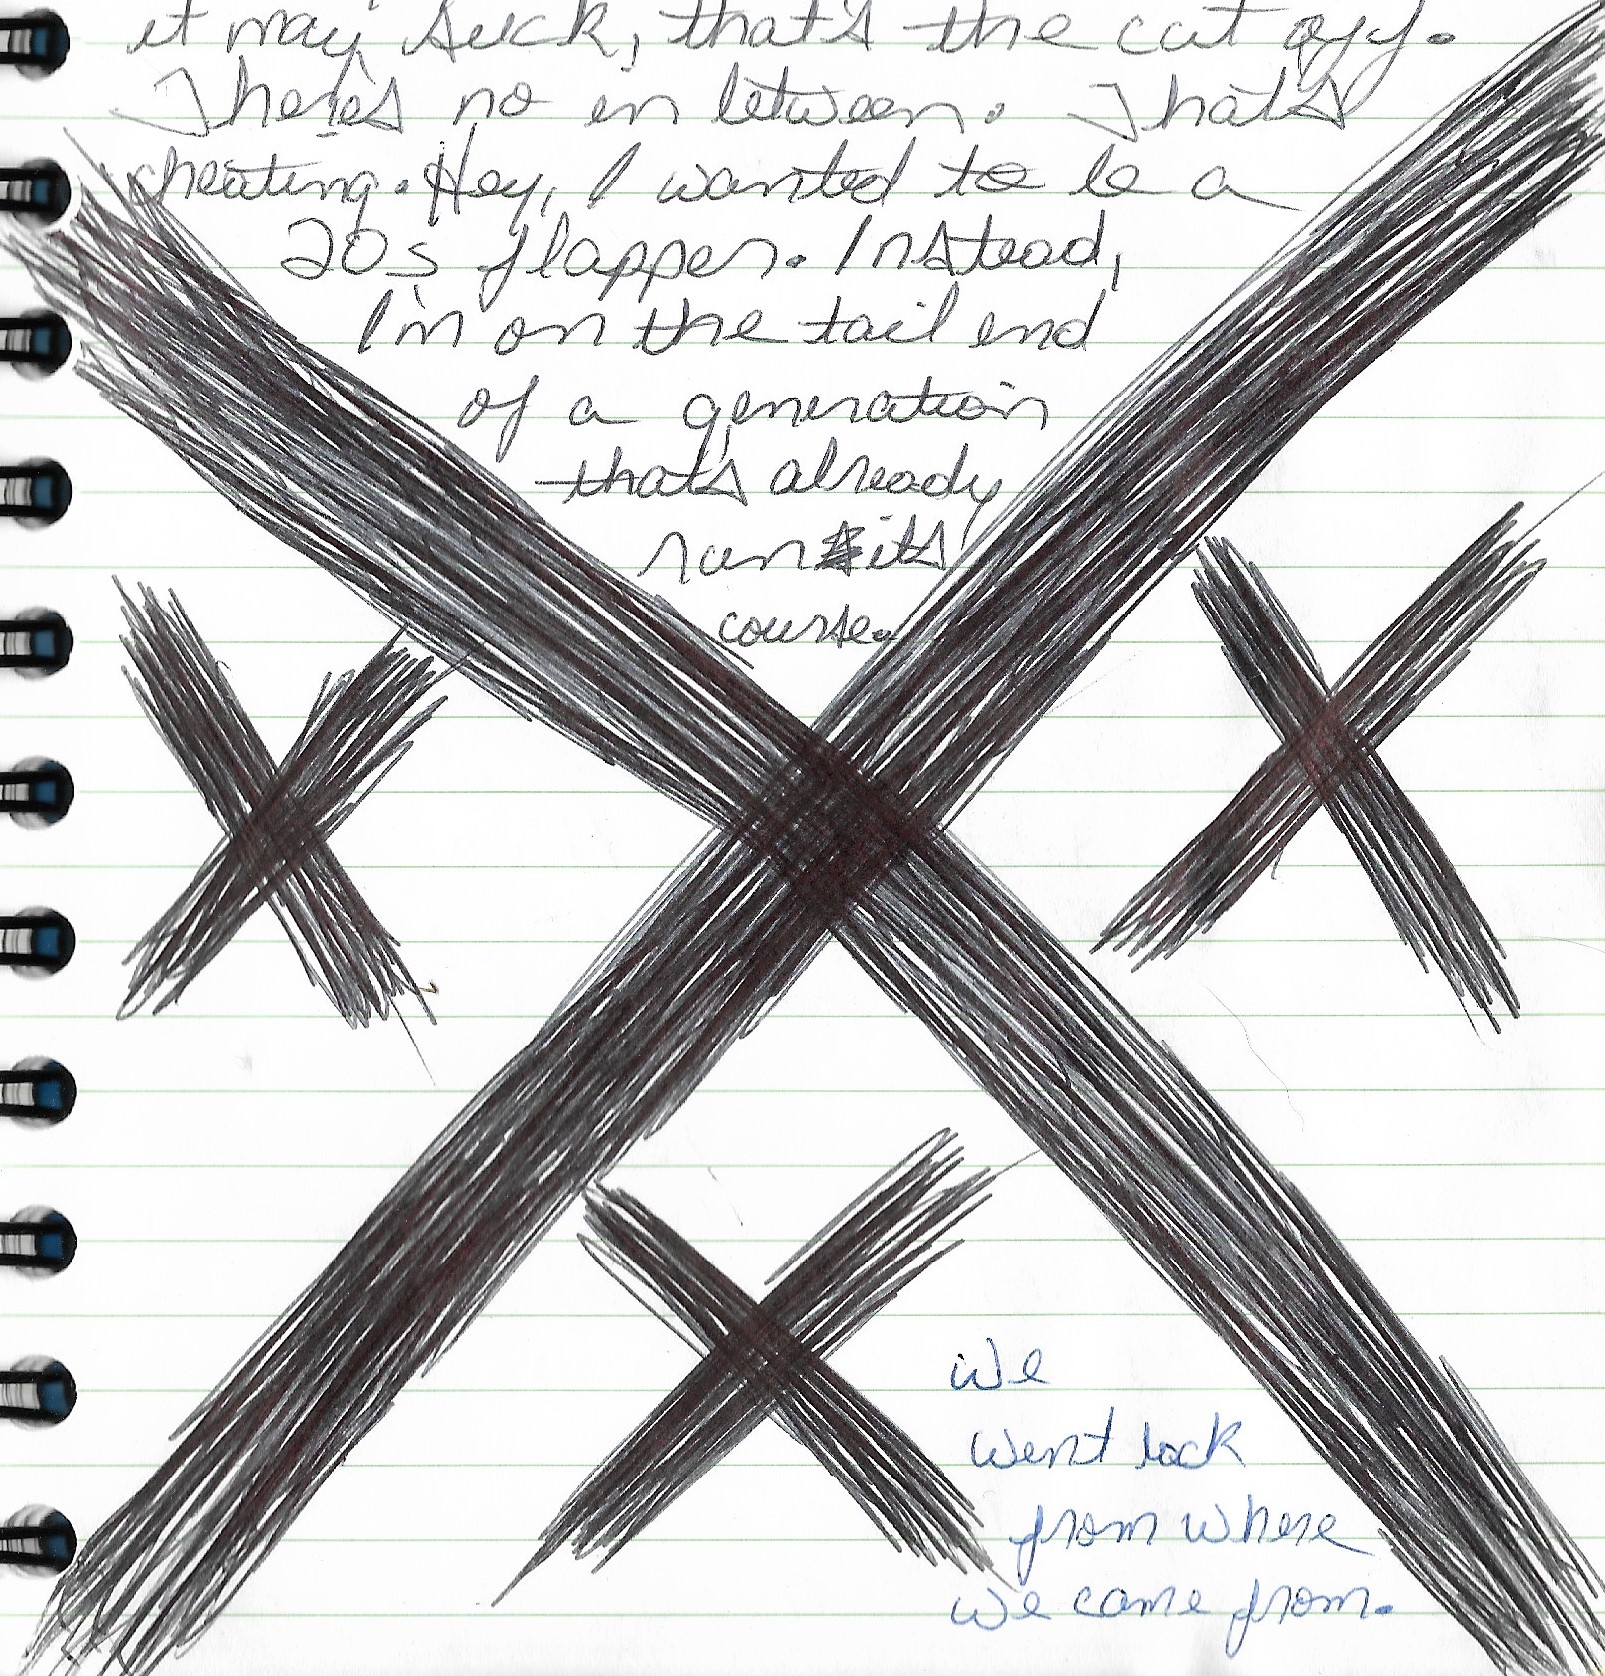 it may suck, that's the cut off.
There's no in between. That's
cheating. Hey, I wanted to be a
20s flapper. Instead,
I'm on the tail end
of a generation
that's already
run its
course.
We
went back
from where
we came from.